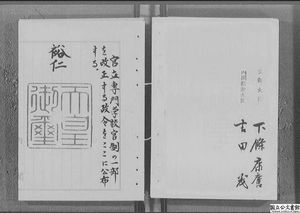 官立専門学校官制の一部
を改正する政令をここに公布
する。
裕仁
天皇
御璽
文部大臣
内閣総理大臣
下條康麿
吉田茂
国立公文書館